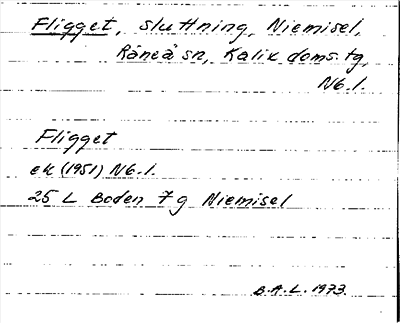 Fligget, sluttning, Niemisel,
Råneå sn, Kalix doms.tg,
Nb.l.
Fligget
ek (1951) Nb.l.
25 L Boden 7 g Niemisel
B.A.L. 1973.